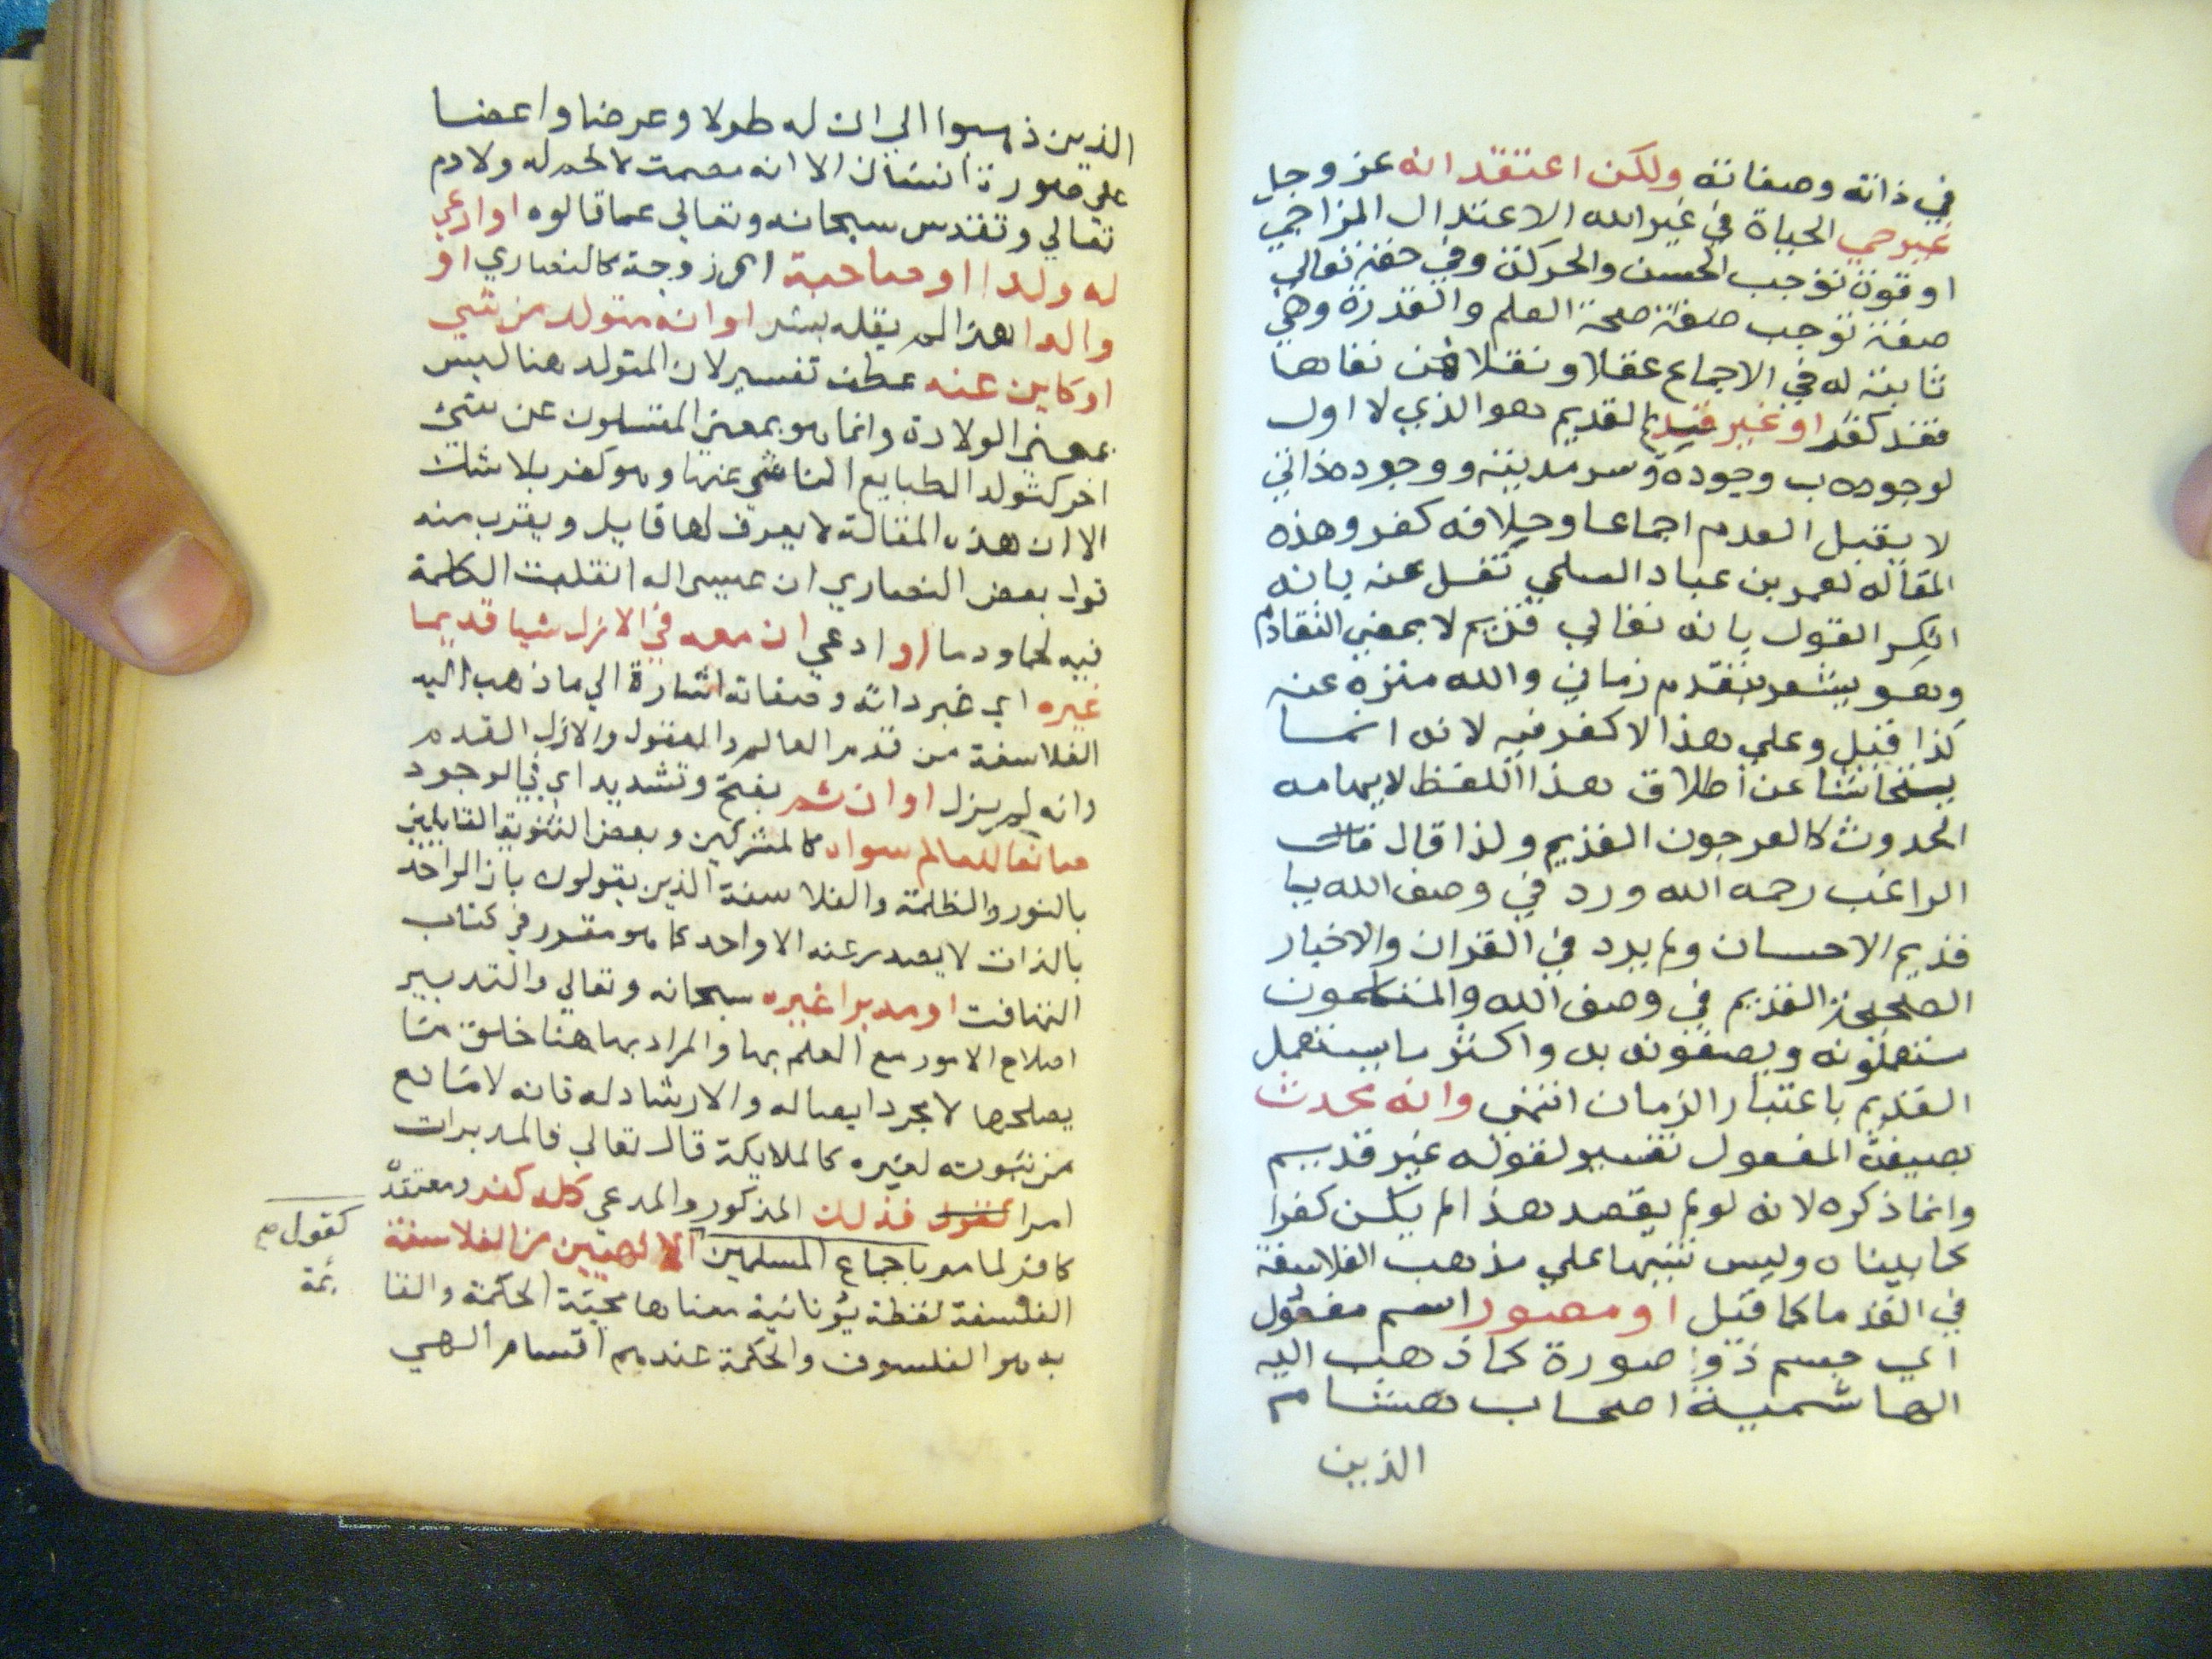 في ذاته وصفاته ولكن اعتقد انه عز وجل
غير حي الحياة في غير الله الاعتدال المزاجي
او قوة توجب الحس والحركة وفي حقه تعالي
صفة توجب صفة صحة العلم والقدرة وهي
ثابتة له في الاجماع عقلا ونقلا فمن نفاها
فقد كفر او غير قديم القديم هو الذي لا اول
لوجوده ب وجوده وسرمديته ووجوده ذاتي
لا يقبل العدم اجماعا وخلافه كفر وهذه
المقاله لعمر بن عباد السلمي نقل عنه بانه
انكر القول بانه تعالي قديم لا بمعني التقادم
وهو يشعر بتقدم زماني والله منزه عنه
كذا قيل وعلي هذا لا كفر فيه لانه انما
يتحاشا عن اطلاق هذا اللفظ لايهامه
الحدوث كالعرجون القديم ولذا قال قال
الراغب رحمه الله ورد في وصف الله يا
قديم الاحسان ولم يرد في القران والاخبار
الصحيحة القديم في وصف الله والمتكلمون
ستعملونه ويصفونه به واكثر ما يستعمل
القديم باعتبار الزمان انتهي وانه محدث
بصيغة المفعول تفسير لقوله غير قديم
وانما ذكره لانه لو لم يقصد هذا لم يكن كفرا
كما بيناه وليس تنبيها علي مذهب الفلاسفة
في القدما كما قيل او مصور اسم مفعول
اي جسم ذو صورة كما ذهب اليه
الهاشمية اصحاب هشام
الذين
الذين ذهبوا الي ان له طولا وعرضا واعضا
علي صورة انسان الا انه مصمت لا لحم له ولا دم
تعالي وتقدس سبحانه وتعالي عما قالوه او ادعي
له ولدا او صاحبة اي زوجة كالنصاري او
والدا هذا لم يقله بشر او انه متولد من شي
او كاين عنه عطف تفسير لان المتولد هنا ليس
بمعني الولادة وانما هو بمعني المتكون عن شئ
اخر كتولد الطبايع الناشي عنها وهو كفر بلا شك
الا ان هذه المقالة لا يعرف لها قايل ويقرب منه
قول بعض النصاري ان عيسي اله انقلبت الكلمة
فيه لحما ودما او ادعي ان معه في الازل شيا قديما
غيره اي غير ذاته وصفاته اشارة الي ما ذهب اليه
الفلاسفة من قدم العالم والعقول والازل القدم
وانه لم يزل او ان ثم بفتح وتشديد اي في الوجود
صانعا للعالم سواه كالمشركين وبعض الثنوية القايلين
بالنور والظلمة والفلاسفة الذين يقولون بان الواحد
بالذات لا يصدر عنه الا واحد كما هو مقرر في كتاب
التهافت او مدبرا غيره سبحانه وتعالي والتدبير
اصلاح الامور مع العلم بها والمراد بها هنا خلق ما
يصلحها لا مجرد ايصاله والارشاد له فانه لا مانع
من ثبوته لغيره كالملايكة قال تعالي فالمدبرات
امرا كقول فذلك المذكور والمدعي كله كفر ومعتقده
كافر لما مر باجماع المسلمين الالهيين من الفلاسفة
الفلسفة لفظة يونانية معناها محبة الحكمة والقا
به هو الفلسوف والحكمة عندهم اقسام الهي
كقول صح